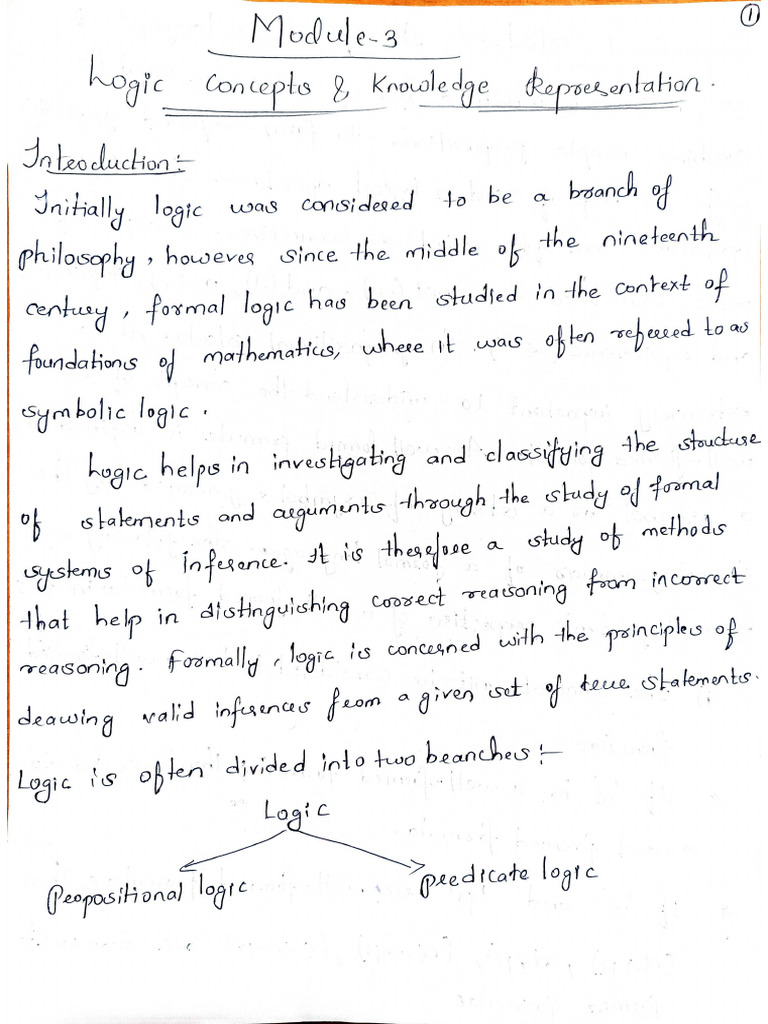 1
Module-3
Logic Concepts & Knowledge Representation.
Introduction:-
Initially logic was considered to be a branch of
philosophy, however since the middle of the nineteenth
century, formal logic has been studied in the context of
foundations of mathematics, where it was often referred to as
symbolic logic.
Logic helps in investigating and classifying the structure
of statements and arguments through the study of formal
systems of inference. It is therefore a study of methods
that help in distinguishing correct reasoning from incorrect
reasoning. Formally, logic is concerned with the principles of
drawing valid inferences from a given set of true statements.
Logic is often divided into two branches:-
Logic
Propositional logic
predicate logic